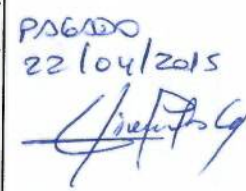 PAGADO
22/04/2015